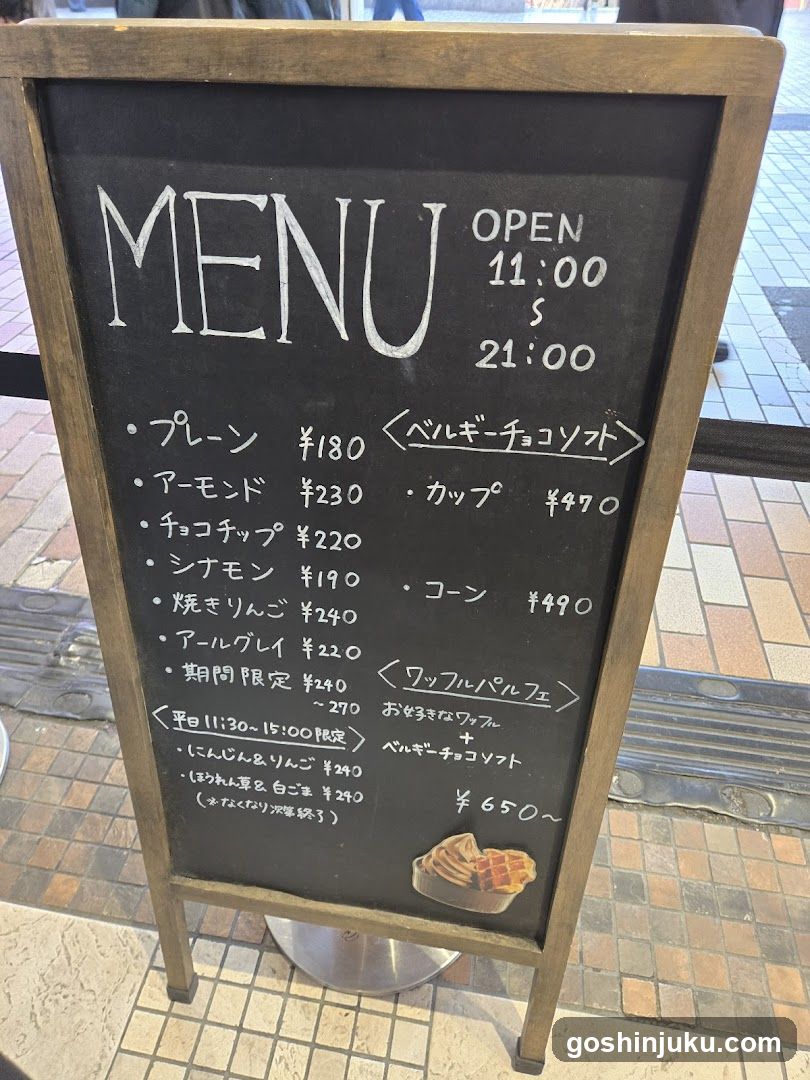 MENU
OPEN
11:00
～
21:00
・プレーン ¥180
・アーモンド ¥230
・チョコチップ ¥220
・シナモン ¥190
・焼きりんご ¥240
・アールグレイ ¥220
・期間限定 ¥240
～270
〈平日11:30～15:00限定〉
・にんじん&りんご ¥240
・ほうれん草&白ごま ¥240
(※なくなり次第終了)
〈ベルギーチョコソフト〉
・カップ ¥470
・コーン ¥490
〈ワッフルパルフェ〉
お好きなワッフル
+
ベルギーチョコソフト
¥650～
goshinjuku.com